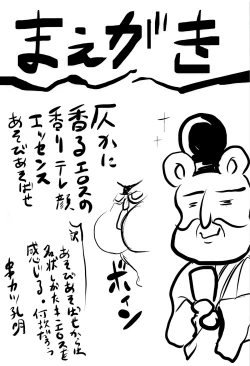 まえがき
仄かに
香るエロスの
香り テレ顔
エッセンス
あそびあそばせ
ボイン
訳
あそびあそばせからは
名状しがたきエロスを
感じる。何故だろう
串カツ孔明